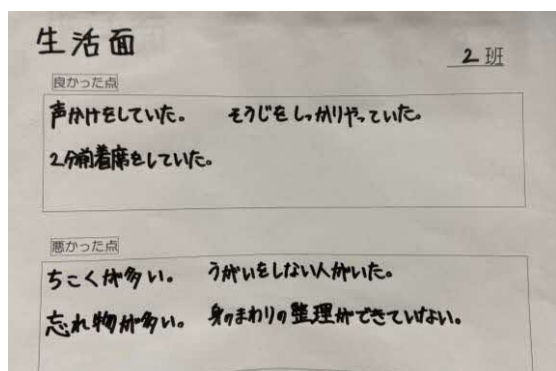 生活面
2班
良かった点
声かけをしていた。 そうじをしっかりやっていた。
2分前着席をしていた。
悪かった点
ちこくが多い。 うがいをしない人がいた。
忘れ物が多い。 身のまわりの整理ができていない。